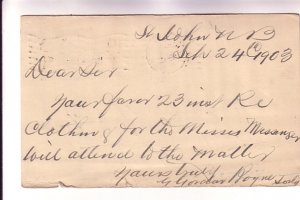 St John N B
Feb 24th 1903
Dear Sir -
Your favor 23 inst Re
Clothing for the Misses Messenger
Will attend to the Matter
Yours truly
Boyne